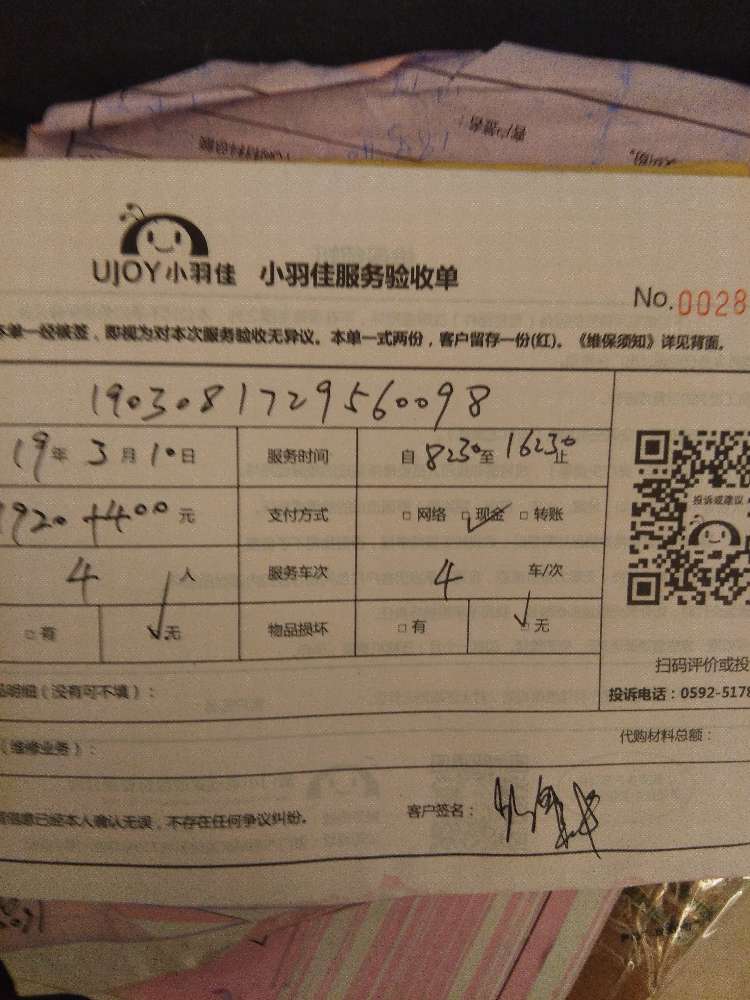 客户签名:
UJOY小羽佳 小羽佳服务验收单
No.0028
本单一经被签，即视为对本次服务验收无异议。本单一式两份，客户留存一份(红)。《维保须知》详见背面。
1903081729560098
19年3月10日 服务时间 自8230至16230止
1920+400元 支付方式 □网络 □现金 □转账
投诉或建议
4人 服务车次 4 车/次
□有 无 物品损坏 □有 □无
扫码评价或投
品明细(没有可不填):
投诉电话:0592-5178
(维修业务):
代购材料总额:
信息已经本人确认无误，不存在任何争议纠纷。 客户签名: